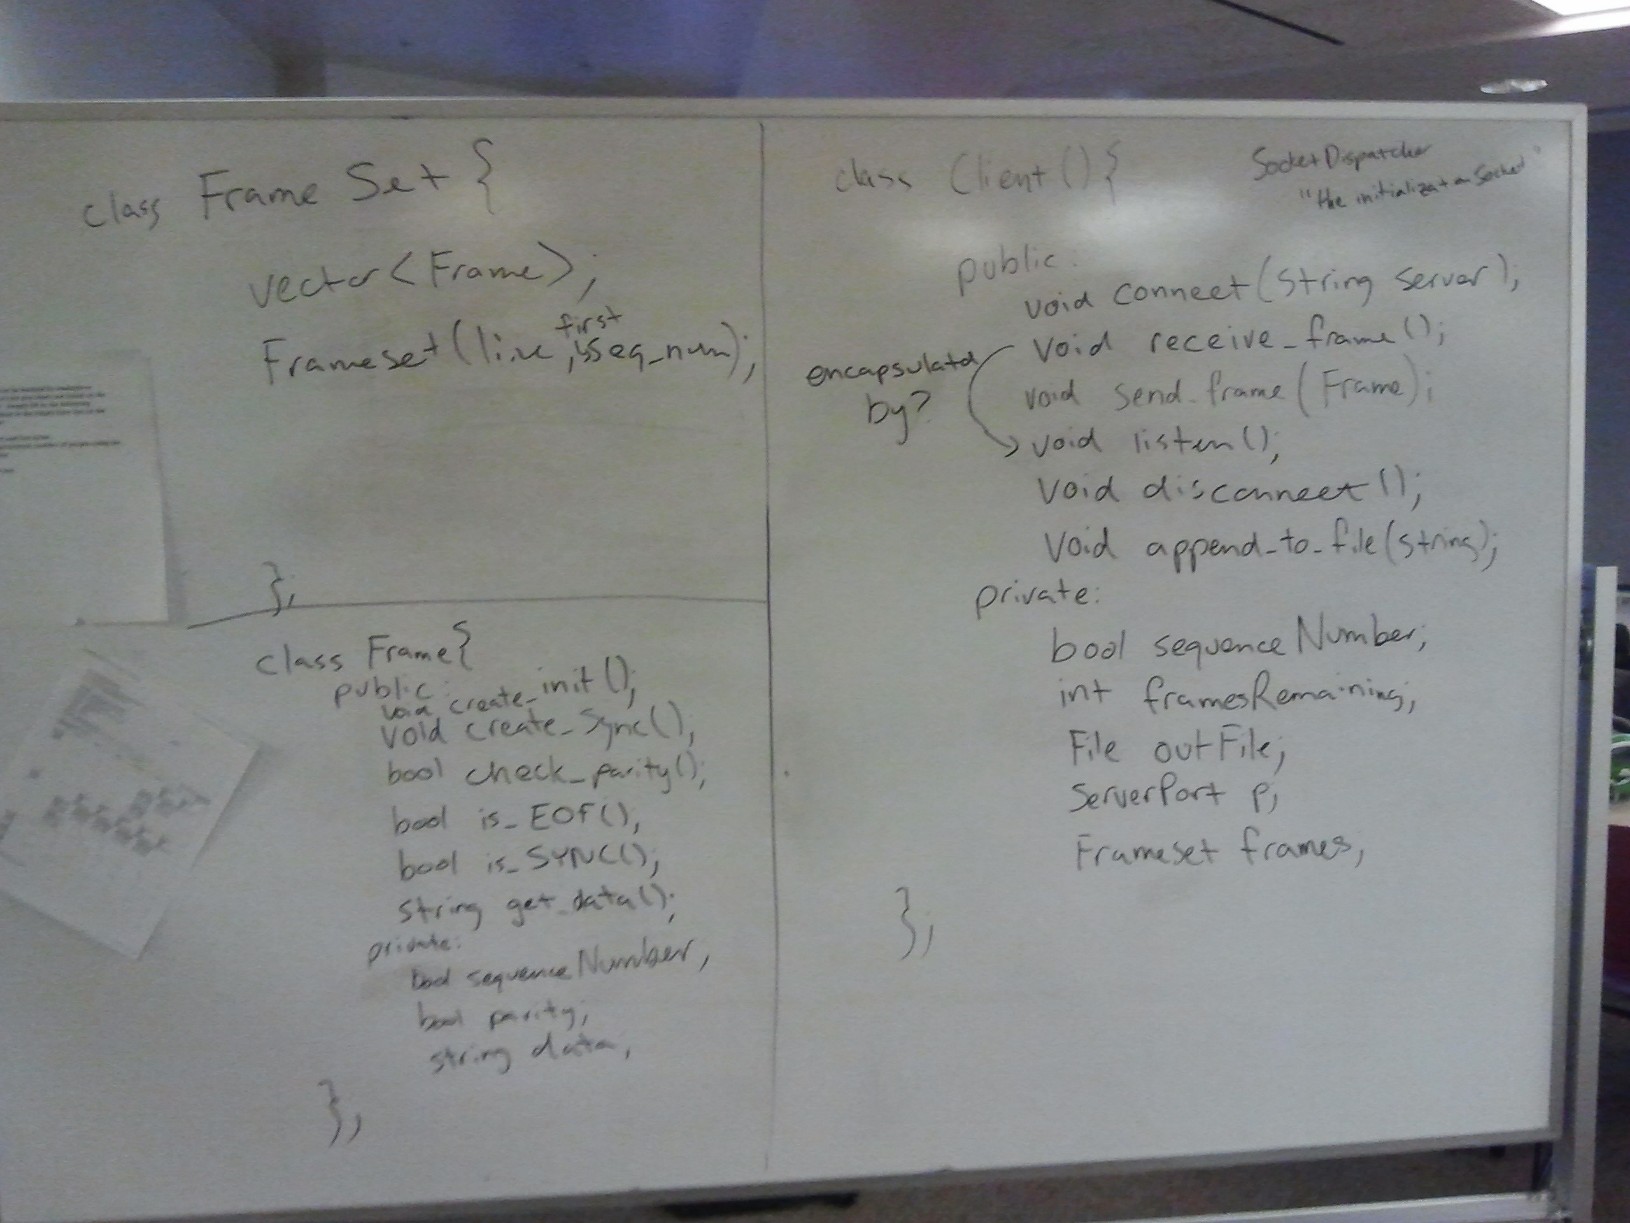 class Frame Set {
vector<Frame>;
first
Frameset(line, seq_num);
};
class Frame{
public:
void create_init();
void create_Sync();
bool check_parity();
bool is_EOF();
bool is_SYNC();
string get_data();
private:
bool sequenceNumber;
bool parity;
string data;
};
class Client(){
SocketDispatcher
"the initialization socket"
public:
void connect(String server);
void receive_frame();
encapsulated
by?
void send_frame(Frame);
void listen();
void disconnect();
void append_to_file(string);
private:
bool sequenceNumber;
int framesRemaining;
File outFile;
ServerPort p;
Frameset frames;
};